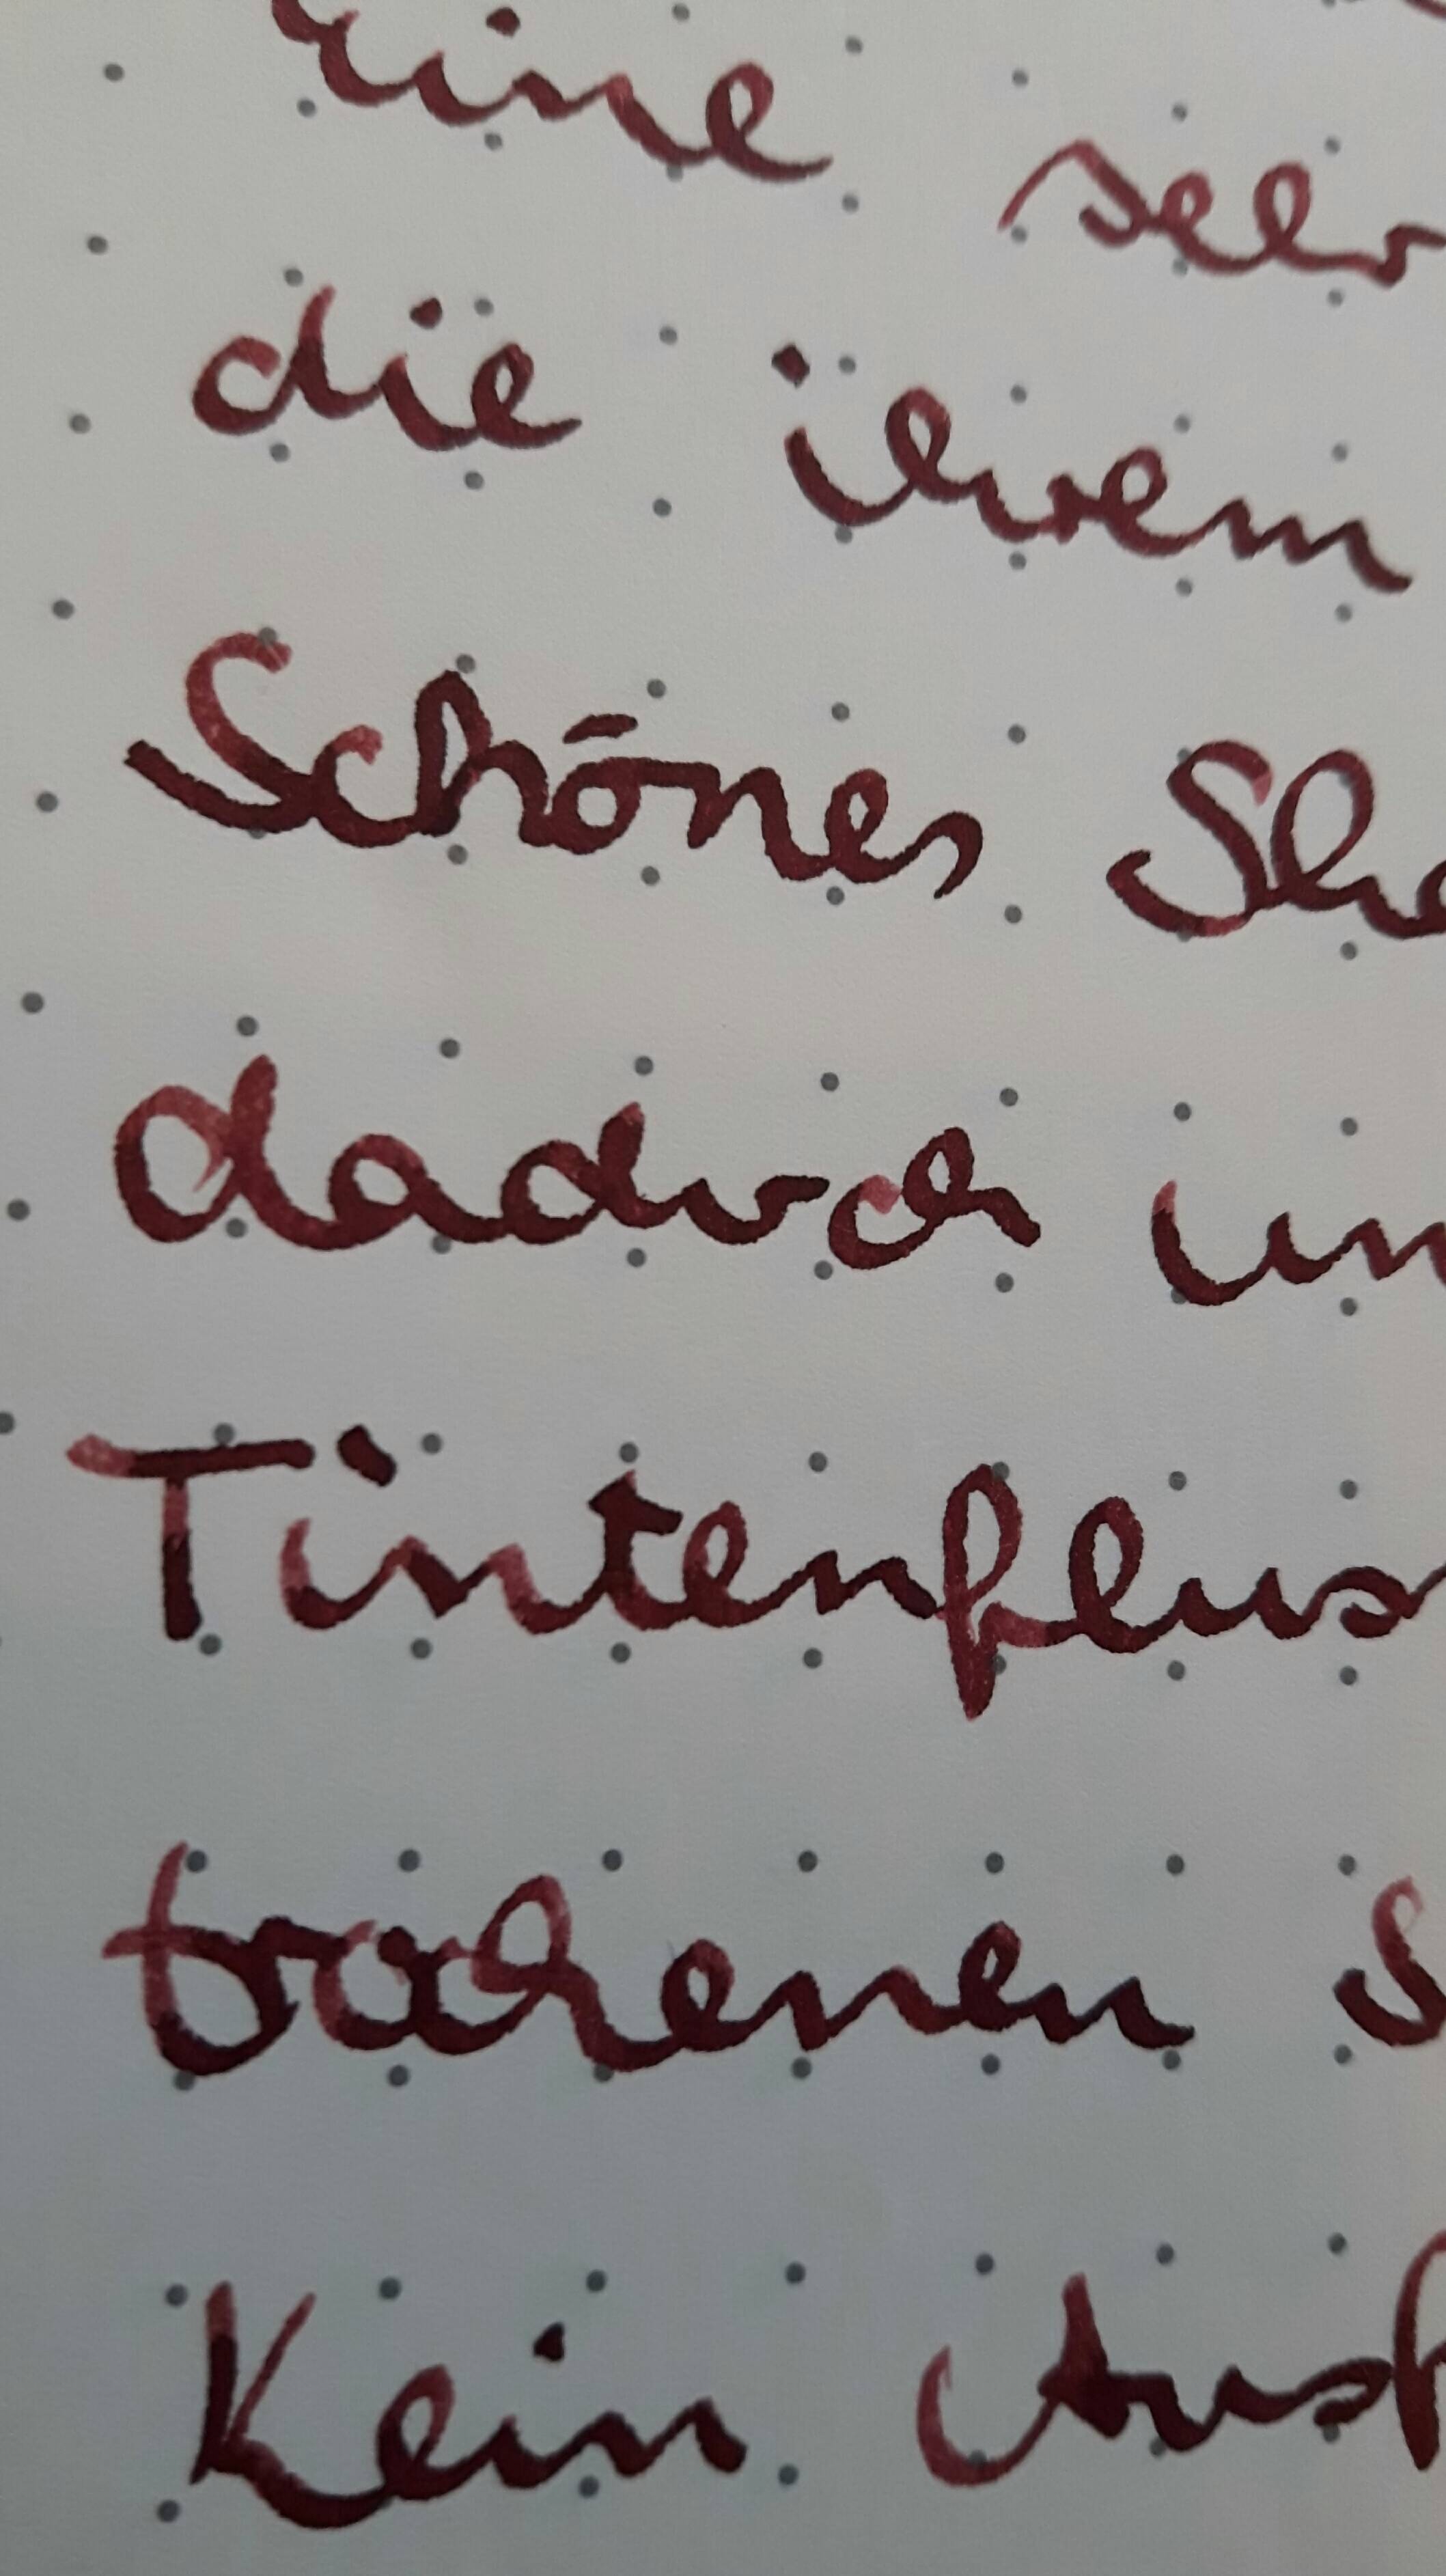 eine seer
die ihrem
Schönes She
dadurch un
Tintenfluss
trockenen S
Kein Ausf